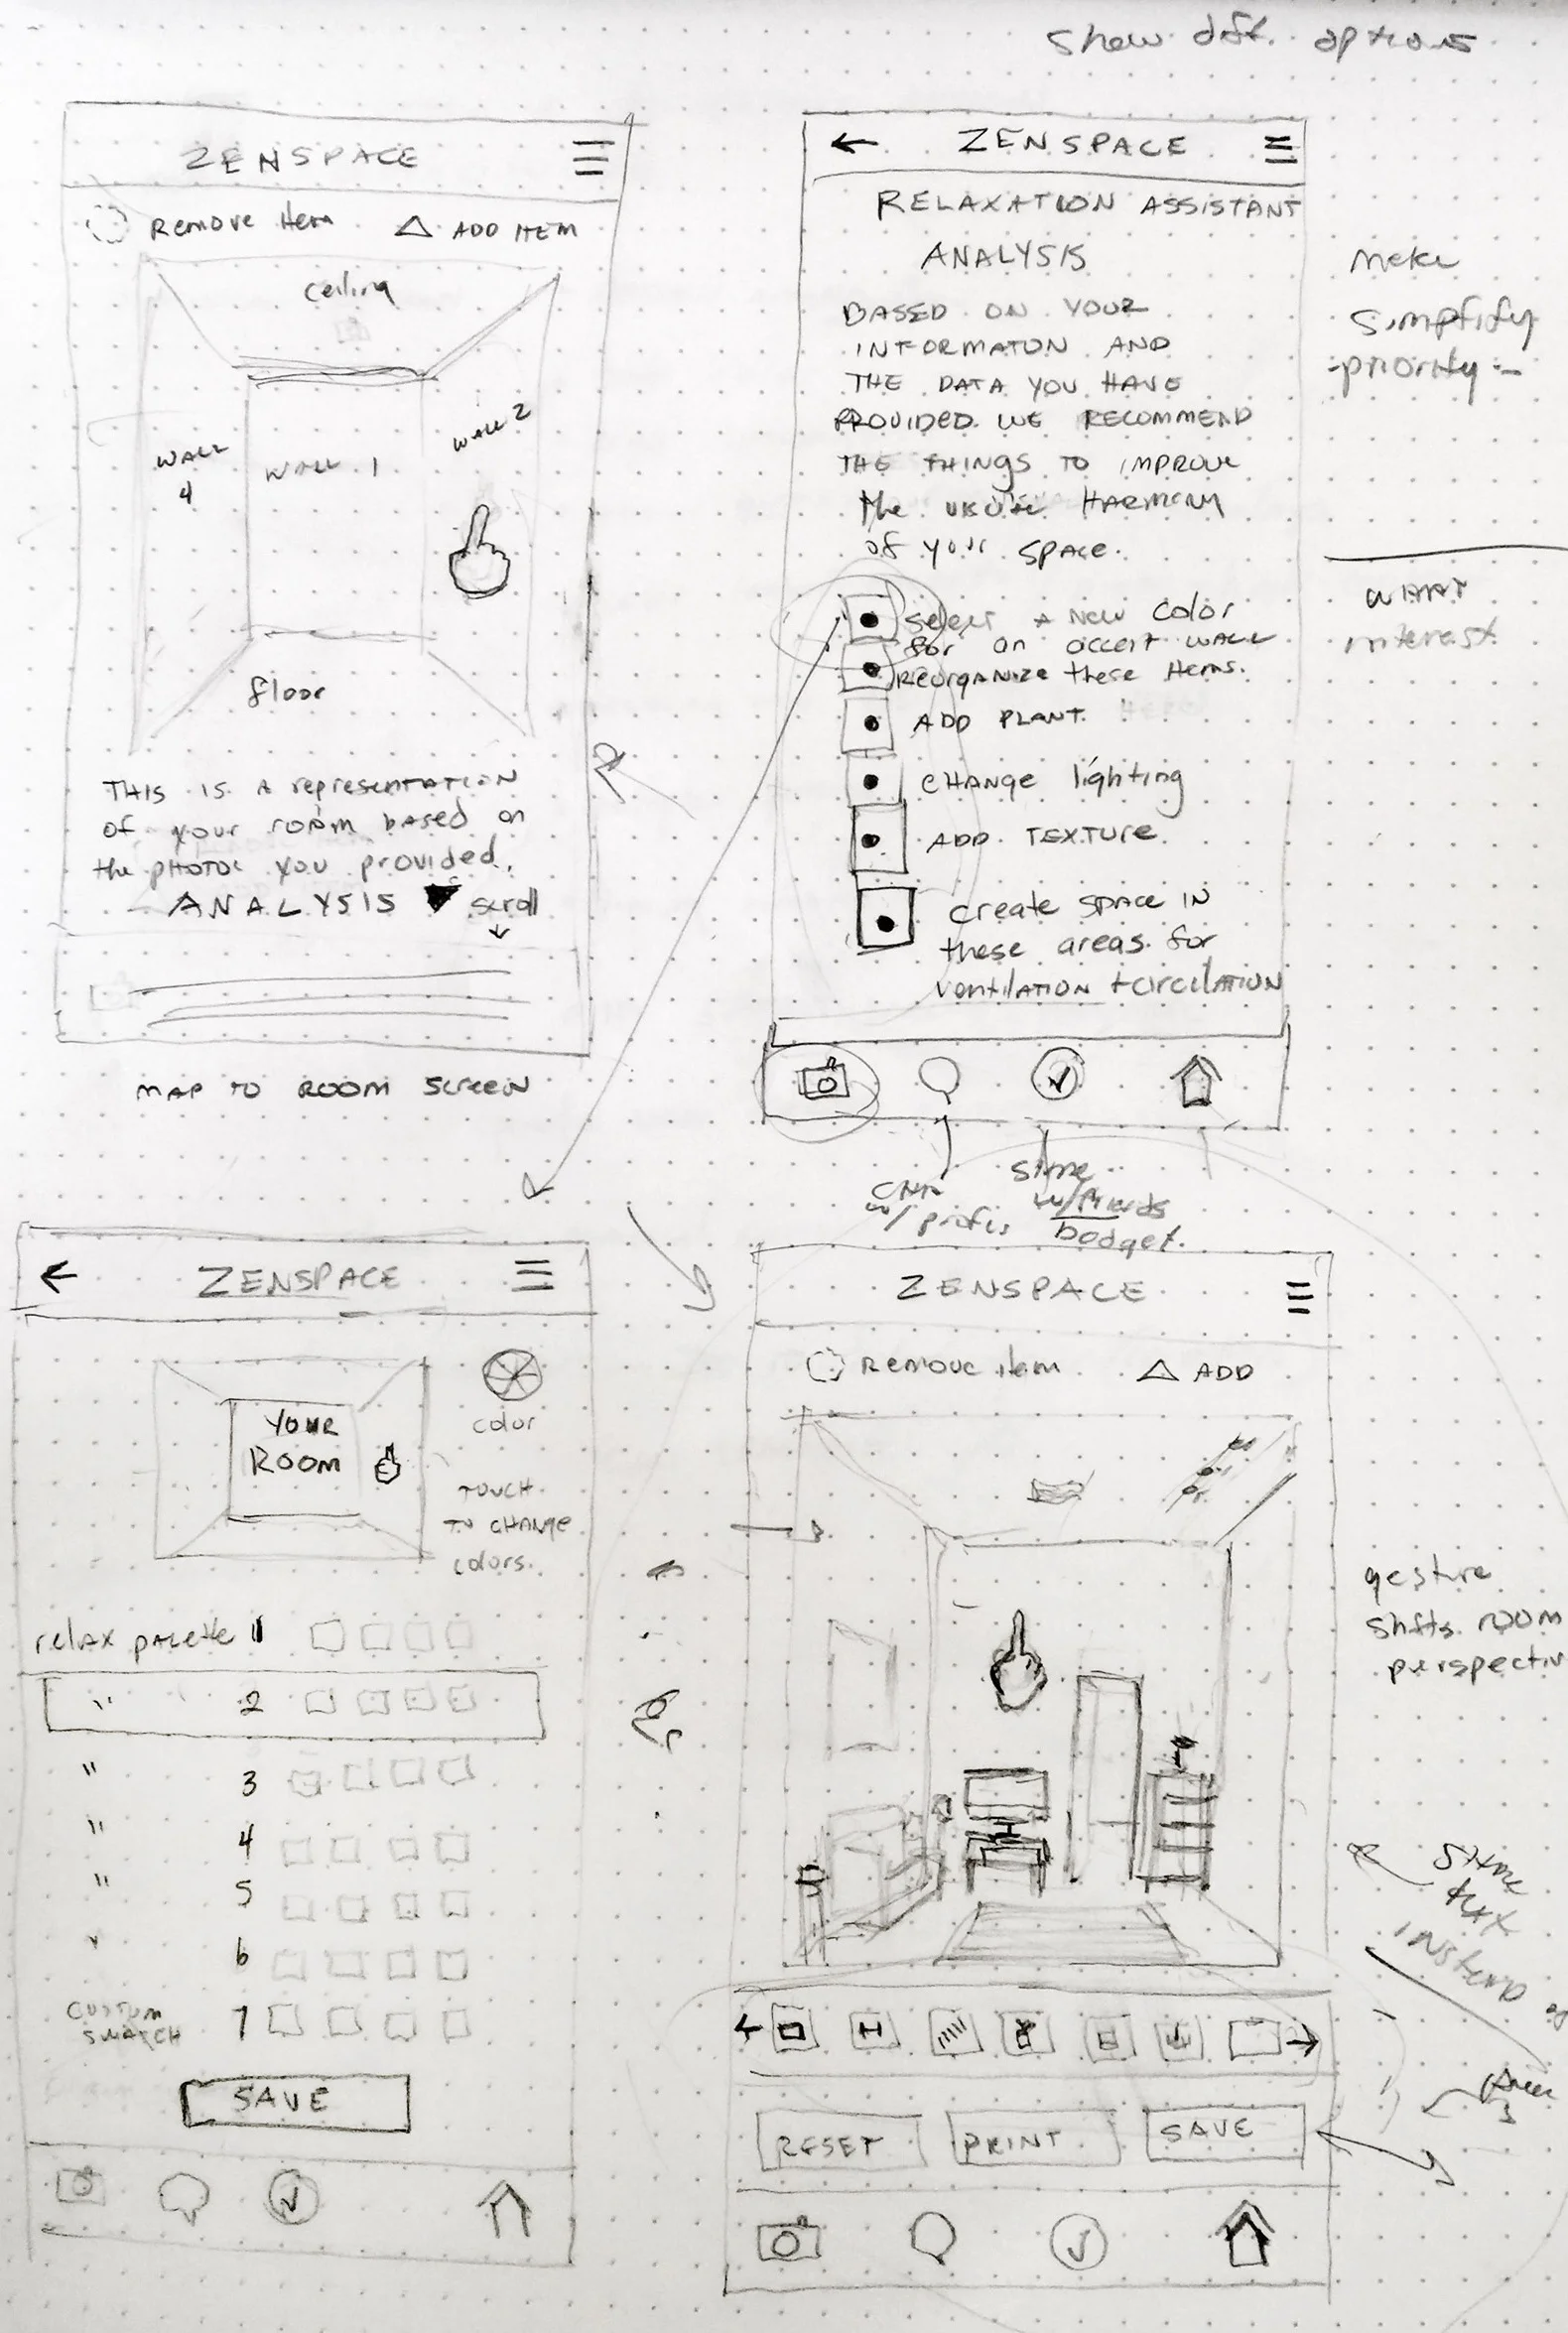 Show diff. options
ZENSPACE
Remove Item
ADD ITEM
ceiling
WALL
4
WALL 1
WALL 2
floor
THIS IS A representation
of your room based on
the PHOTOS you provided.
ANALYSIS
scroll
MAP TO ROOM SCREEN
ZENSPACE
RELAXATION ASSISTANT
ANALYSIS
BASED ON YOUR
INFORMATON AND
THE DATA YOU HAVE
PROVIDED WE RECOMMEND
THE THINGS TO IMPROVE
the HARMONY
of your SPACE.
Select A New Color
for an accent WALL
REORGANIZE these Items.
ADD PLANT
CHANGE lighting
ADD TEXTURE
Create space IN
these areas for
ventilATION + CIRCULATION
w/
w/friends
budget.
make
simplify
-priority-
WHAT
interest
ZENSPACE
YOUR
ROOM
color
TOUCH
TO CHANGE
colors.
relax palette 1
" 2
" 3
" 4
" 5
" 6
CUSTOM
SWATCH 7
SAVE
ZENSPACE
Remove item
ADD
gesture
shifts room
perspectiv
RESET
PRINT
SAVE